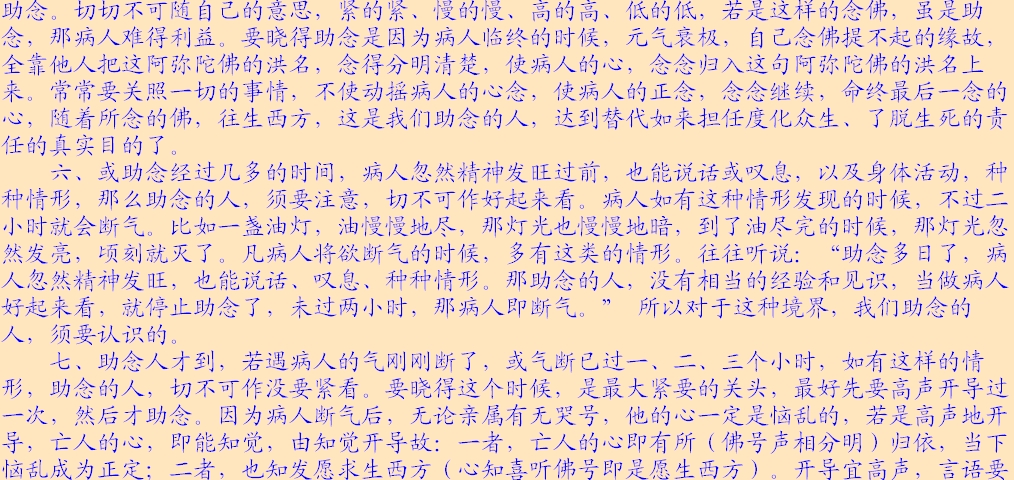 助念。切切不可随自己的意思，紧的紧、慢的慢、高的高、低的低，若是这样的念佛，虽是助
念，那病人难得利益。要晓得助念是因为病人临终的时候，元气衰极，自己念佛提不起的缘故，
全靠他人把这阿弥陀佛的洪名，念得分明清楚，使病人的心，念念归入这句阿弥陀佛的洪名上
来。常常要关照一切的事情，不使动摇病人的心念，使病人的正念，念念继续，命终最后一念的
心，随着所念的佛，往生西方，这是我们助念的人，达到替代如来担任度化众生、了脱生死的责
任的真实目的了。
六、或助念经过几多的时间，病人忽然精神发旺过前，也能说话或叹息，以及身体活动，种
种情形，那么助念的人，须要注意，切不可作好起来看。病人如有这种情形发现的时候，不过二
小时就会断气。比如一盏油灯，油慢慢地尽，那灯光也慢慢地暗，到了油尽完的时候，那灯光忽
然发亮，顷刻就灭了。凡病人将欲断气的时候，多有这类的情形。往往听说：“助念多日了，病
人忽然精神发旺，也能说话、叹息、种种情形。那助念的人，没有相当的经验和见识，当做病人
好起来看，就停止助念了，未过两小时，那病人即断气。” 所以对于这种境界，我们助念的
人，须要认识的。
七、助念人才到，若遇病人的气刚刚断了，或气断已过一、二、三个小时，如有这样的情
形，助念的人，切不可作没要紧看。要晓得这个时候，是最大紧要的关头，最好先要高声开导过
一次，然后才助念。因为病人断气后，无论亲属有无哭号，他的心一定是恼乱的，若是高声地开
导，亡人的心，即能知觉，由知觉开导故：一者，亡人的心即有所（佛号声相分明）归依，当下
恼乱成为正定；二者，也知发愿求生西方（心知喜听佛号即是愿生西方）。开导宜高声，言语要